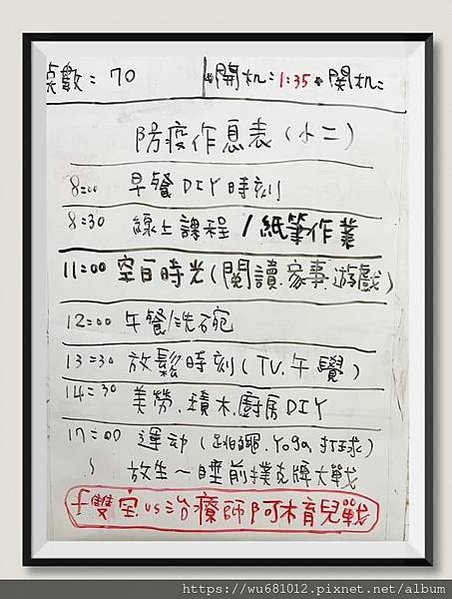 點數：70 開机：1:35 開机：
防疫作息表（小二）
8:00 早餐DIY時刻
8:30 線上課程/紙筆作業
11:00 空白時光(閱讀.家事.遊戲)
12:00 午餐/洗碗
13:30 放鬆時刻(TV.午覺)
14:30 美勞.積木.廚房DIY
17:00 運动(跳繩.Yoga 打球)
～ 放生～睡前撲克牌大戰
雙寶vs治療師阿木育兒戰
https://wu681012.pixnet.net/album